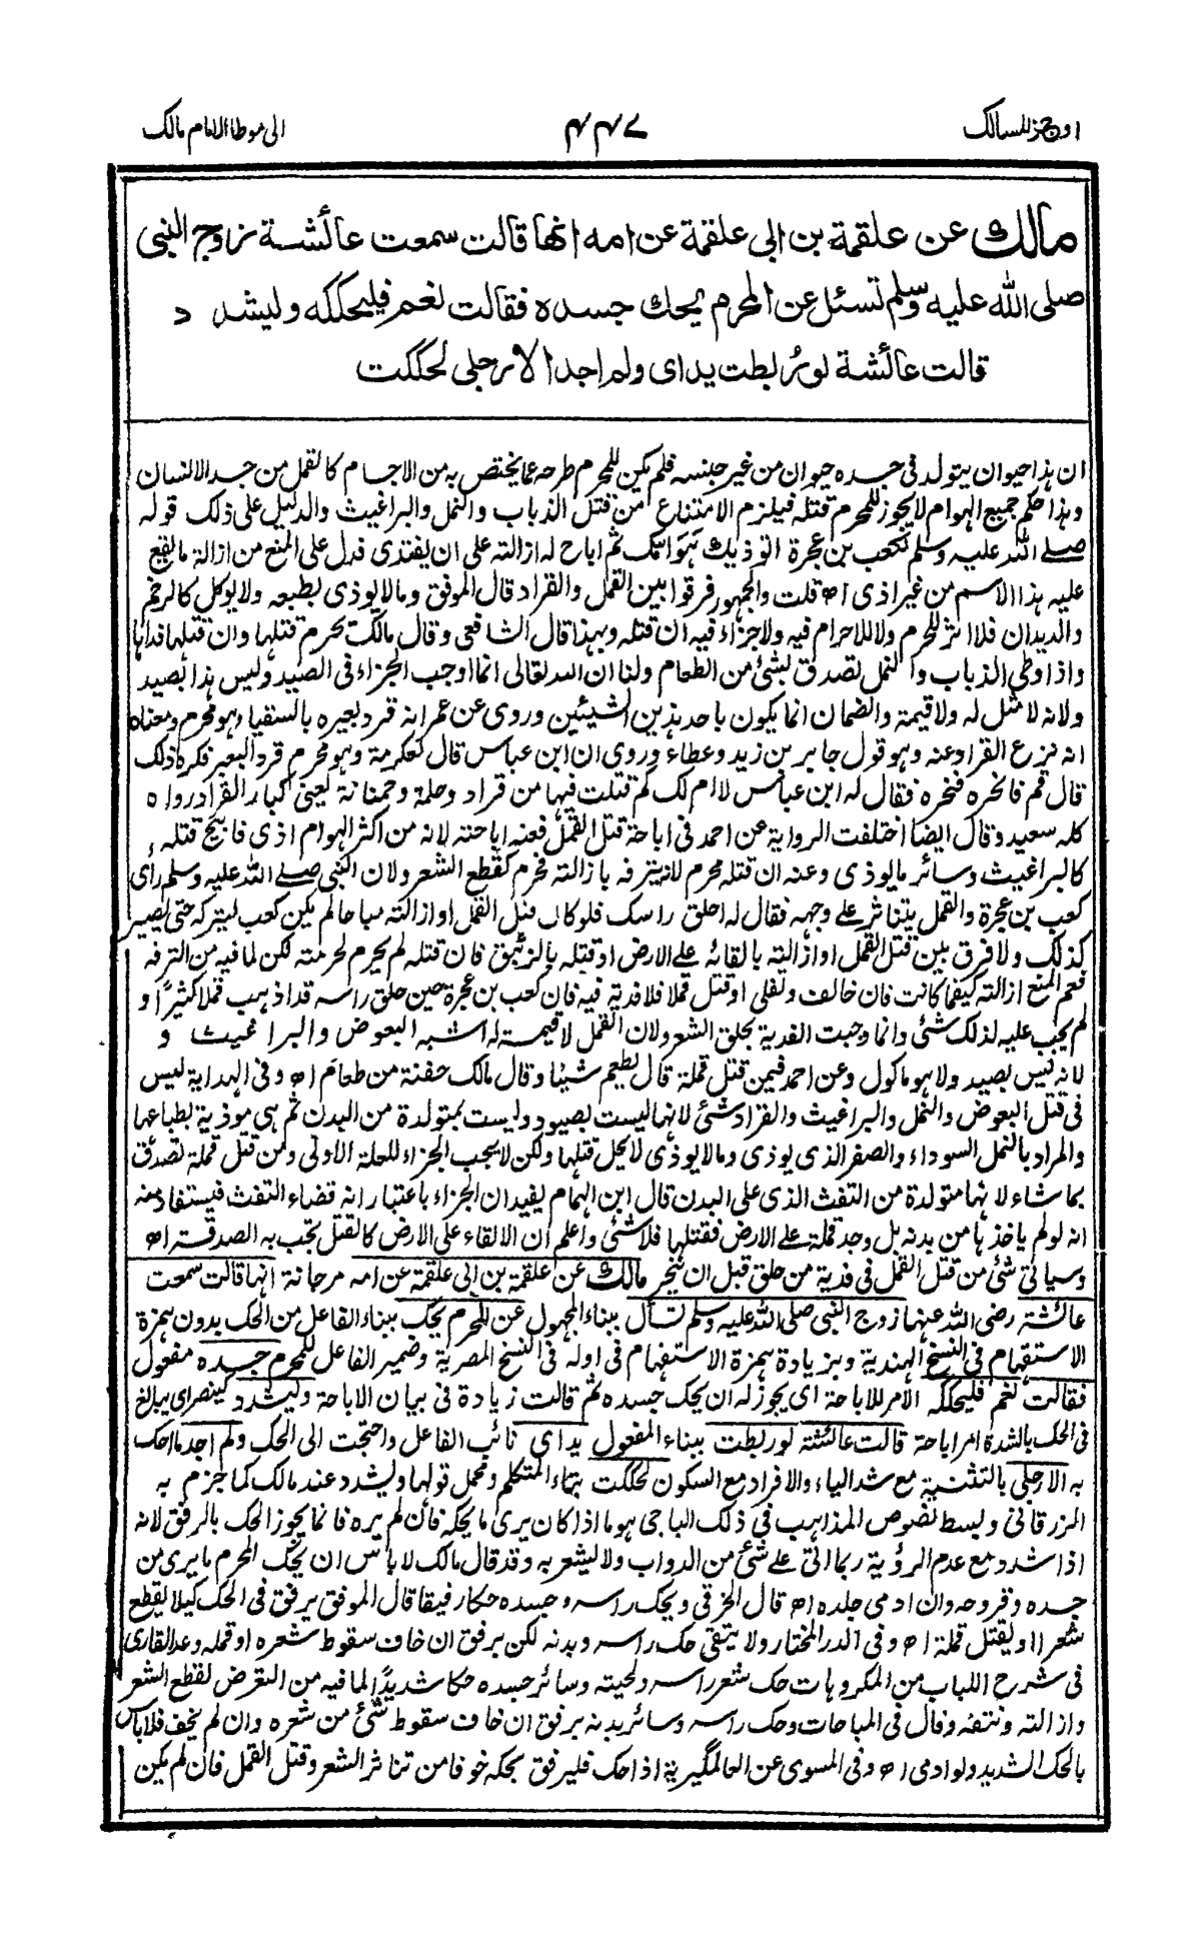 اوجز المسالك ۴۴۷ الى موطأ الامام مالك
مالك عن علقمة بن ابى علقمة عن امه انها قالت سمعت عائشة زوج النبى
صلى الله عليه وسلم تسئل عن المحرم يحك جسده فقالت نعم فليحككه وليشدد
قالت عائشة لو ربطت يداى ولم اجد الا رجلى لحككت
ان هذا حيوان يتولد فى جسده حيوان من غير جنسه فلم يكن للمحرم طرحه عما يختص به من الاجسام كالقمل من جسد الانسان
وهذا حكم جميع الهوام لا يجوز للمحرم قتله فيلزم الامتناع من قتل الذباب والنمل والبراغيث والدليل على ذلك قوله
صلى الله عليه وسلم لكعب بن عجرة اتؤذيك هوامك ثم اباح له ازالته على ان يفتدى فدل على المنع من ازالة ما يقع
عليه هذا الاسم من غير اذى اھ قلت والجمهور فرقوا بين القمل والقراد قال الموفق وما لا يوذى بطبعه ولا يوكل كالرخم
والديدان فلا اثر للحرم ولا للاحرام فيه ولا جزاء فيه ان قتله وبهذا قال الشافعى وقال مالك يحرم قتلها وان قتلها فداها
واذا وطى الذباب والنمل تصدق بشئ من الطعام ولنا ان الله تعالى انما اوجب الجزاء فى الصيد وليس هذا بصيد
ولانه لا مثل له ولا قيمة والضمان انما يكون باحد هذين الشيئين وروى عن عمر انه قرد بعيره بالسقيا وهو محرم ومعناه
انه نزع القراد عنه وهو قول جابر بن زيد وعطاء وروى ان ابن عباس قال لعكرمة وهو محرم قرد البعير فكره ذلك
قال قم فانحره فنحره فقال له ابن عباس لا ام لك كم قتلت فيها من قراد وحلمة وحمنانة يعنى كبار القراد رواه
كله سعيد وقال ايضا اختلفت الرواية عن احمد فى اباحة قتل القمل فعنه اباحته لانه من اكثر الهوام اذى فابيح قتله
كالبراغيث وسائر ما يوذى وعنه ان قتله محرم لانه يترفه بازالته فحرم كقطع الشعر ولان النبى صلى الله عليه وسلم رأى
كعب بن عجرة والقمل يتناثر على وجهه فقال له احلق راسك فلو كان قتل القمل او ازالته مباحا لم يكن كعب ليتركه حتى يصير
كذلك ولا فرق بين قتل القمل او ازالته بالقائه على الارض او قتله بالزئبق فان قتله لم يحرم لحرمته لكن لما فيه من الترفه
فعم المنع ازالته كيفما كانت فان خالف وتفلى او قتل قملا فلا فدية فيه فان كعب بن عجرة حين حلق راسه قد اذهب قملا كثيرًا و
لم يجب عليه لذلك شئ وانما وجبت الفدية بحلق الشعر ولان القمل لا قيمة له اشبه البعوض والبراغيث و
لانه ليس بصيد ولا هو ماكول وعن احمد فيمن قتل قملة قال يطعم شيئا وقال مالك حفنة من طعام اھ وفى الهداية ليس
فى قتل البعوض والنمل والبراغيث والقراد شئ لانها ليست بصيود وليست بمتولدة من البدن ثم هى موذية بطباعها
والمراد بالنمل السوداء والصفر الذى يوذى وما لا يوذى لا يحل قتلها ولكن لا يجب الجزاء للعلة الاولى ومن قتل قملة تصدق
بما شاء لانها متولدة من التفث الذى على البدن قال ابن الهمام يفيد ان الجزاء باعتبار انه قضاء التفث فيستفاد منه
انه لو لم ياخذها من بدنه بل وجد قملة على الارض فقتلها فلا شئ واعلم ان الالقاء على الارض كالقتل تجب به الصدقة اھ
وسياتى شئ من قتل القمل فى فدية من حلق قبل ان ينحر مالك عن علقمة بن ابى علقمة عن امه مرجانة انها قالت سمعت
عائشة رضى الله عنها زوج النبى صلى الله عليه وسلم تسأل ببناء المجهول عن المحرم يحك ببناء الفاعل من الحك بدون همزة
الاستفهام فى النسخ الهندية وبزيادة همزة الاستفهام فى اوله فى النسخ المصرية وضمير الفاعل للمحرم جسده مفعول
فقالت نعم فليحككه الامر للاباحة اى يجوز له ان يحك جسده ثم قالت زيادة فى بيان الاباحة وليشدد كينصر اى يبالغ
فى الحك بالشدة امر اباحة قالت عائشة لو ربطت ببناء المفعول يداى نائب الفاعل واحتجت الى الحك ولم اجد ما احك
به الا رجلى بالتثنية مع شد الياء والافراد مع السكون لحككت بتاء المتكلم ومحمل قولها وليشدد عند مالك كما جزم به
الزرقانى وبسط نصوص المذاهب فى ذلك الباجى هو ما اذا كان يرى ما يحكه فان لم يره فانما يجوز الحك بالرفق لانه
اذا شدد مع عدم الرؤية ربما اتى على شئ من الدواب ولا يشعر به وقد قال مالك لا باس ان يحك المحرم ما يرى من
جسده وقروحه وان ادمى جلده اھ قال الخرقى ويحك راسه وجسده حكا رفيقا قال الموفق برفق فى الحك كيلا يقطع
شعرا او يقتل قملة اھ وفى الدر المختار ولا يتقى حك راسه وبدنه لكن برفق ان خاف سقوط شعره او قمله وعد القارى
فى شرح اللباب من المكروهات حك شعر راسه ولحيته وسائر جسده حكا شديدًا لما فيه من التعرض لقطع الشعر
وازالته ونتفه وقال فى المباحات وحك راسه وسائر بدنه برفق ان خاف سقوط شئ من شعره وان لم يخف فلا باس
بالحك الشديد ولو ادمى اھ وفى المسوى عن العالمگيرية اذا حك فليرفق بحكه خوفا من تناثر الشعر وقتل القمل فان لم يكن